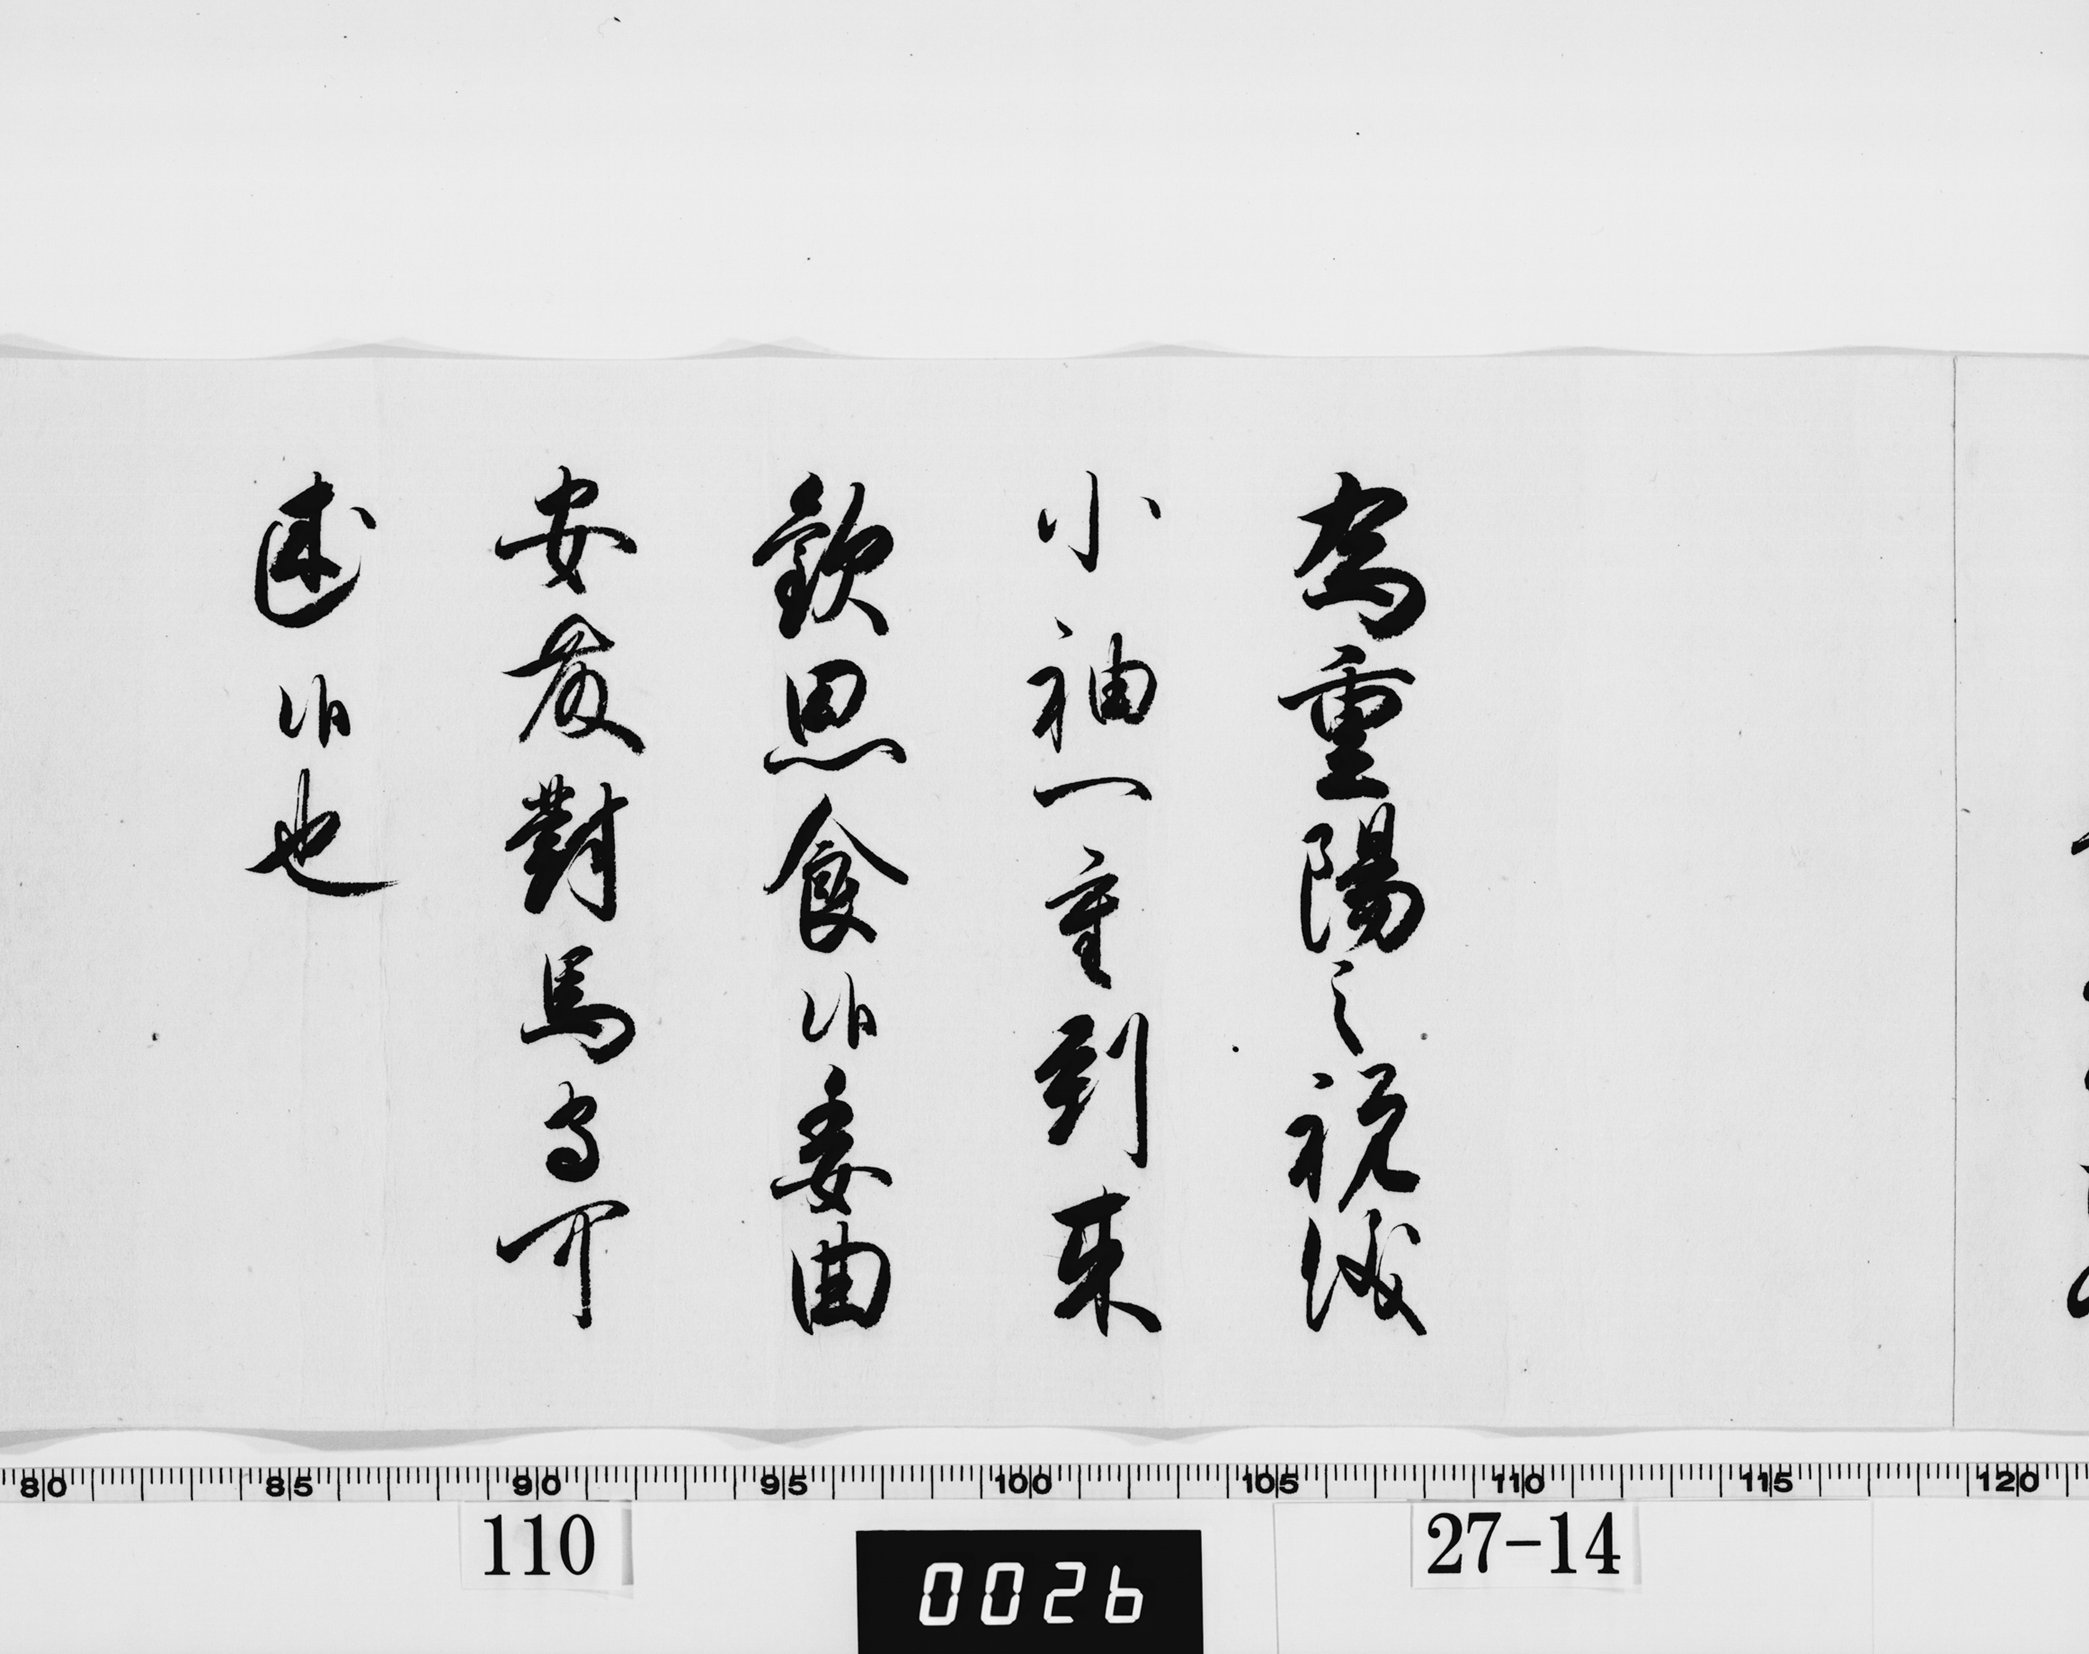 為重陽之祝儀
小袖一重到来
歓思食候委曲
安藤對馬守可
述候也
80 85 90 95 100 105 110 115 120
110
0026
27-14